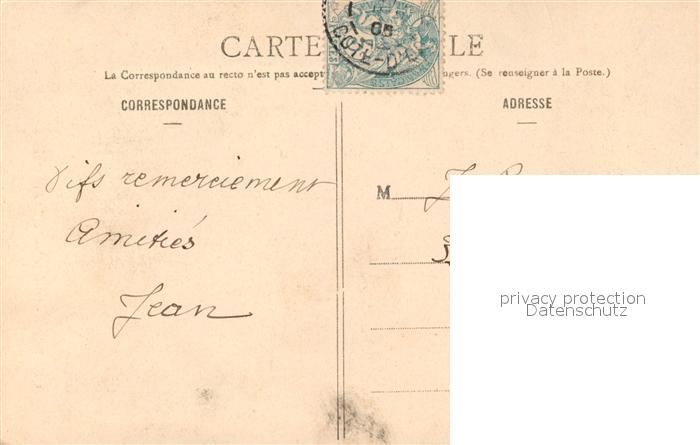 CARTE LE
La Correspondance au recto n'est pas accept ngers. (Se renseigner à la Poste.)
CORRESPONDANCE
ADRESSE
Vifs remerciement
Amitiés
Jean
M
privacy protection
Datenschutz
1 05
COTE-D'OR